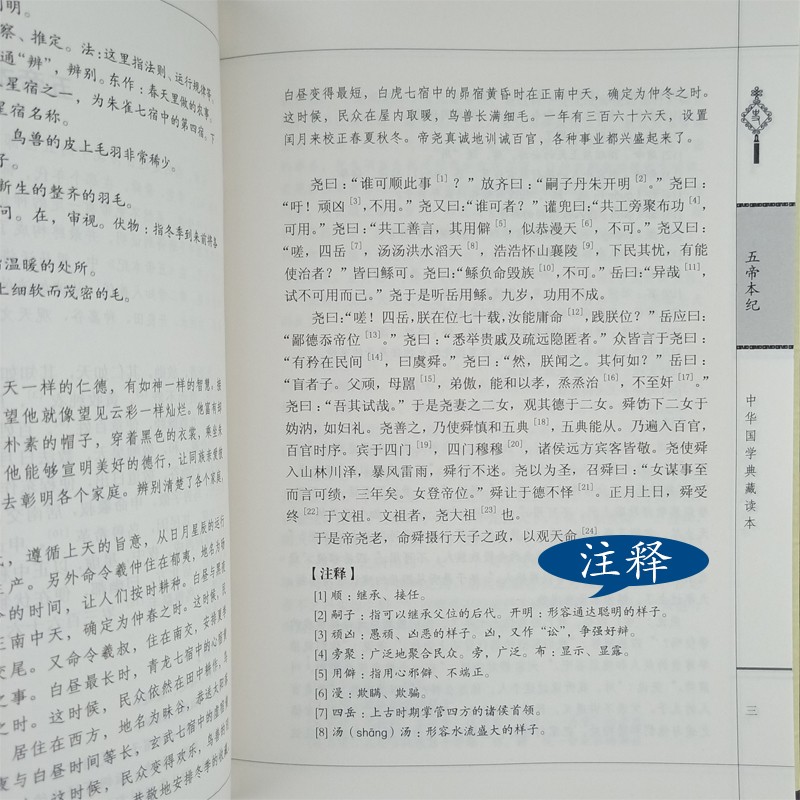 察、推定。法：这里指法则、运行规律等。
通“辨”，辨别。东作：春天里做的农事。
星宿之一，为朱雀七宿中的第四宿，下
星宿名称。
鸟兽的皮上毛羽非常稀少。
子。
新生的整齐的羽毛。
问。在，审视。伏物：指冬季到来前将各
温暖的处所。
上细软而茂密的毛。
天一样的仁德，有如神一样的智慧，接
望他就像望见云彩一样灿烂。他富有却
朴素的帽子，穿着黑色的衣裳，乘坐朱
他能够宣明美好的德行，让同族亲爱敬
去彰明各个家庭。辨别清楚了各个家庭，
，遵循上天的旨意，从日月星辰的运行
生产。另外命令羲仲住在郁夷，地名为旸
的时间，让人们按时耕种。白昼与黑夜
正南中天，确定为仲春之时。这时候，民
交尾。又命令羲叔，住在南交，安排夏季
之事。白昼最长时，青龙七宿中的心宿黄
之时。这时候，民众依然在田中耕作，鸟
居住在西方，地名为昧谷，恭送太阳落
夜与白昼时间等长，玄武七宿中的虚宿黄
这时候，民众变得欢乐，鸟兽的羽
恭敬地安排冬季的收藏
白昼变得最短，白虎七宿中的昴宿黄昏时在正南中天，确定为仲冬之时。
这时候，民众在屋内取暖，鸟兽长满细毛。一年有三百六十六天，设置
闰月来校正春夏秋冬。帝尧真诚地训诫百官，各种事业都兴盛起来了。
尧曰：“谁可顺此事[1]？”放齐曰：“嗣子丹朱开明[2]。”尧曰：
“吁！顽凶[3]，不用。”尧又曰：“谁可者？”讙兜曰：“共工旁聚布功[4]，
可用。”尧曰：“共工善言，其用僻[5]，似恭漫天[6]，不可。”尧又曰：
“嗟，四岳[7]，汤汤洪水滔天[8]，浩浩怀山襄陵[9]，下民其忧，有能
使治者？”皆曰鲧可。尧曰：“鲧负命毁族[10]，不可。”岳曰：“异哉[11]，
试不可用而已。”尧于是听岳用鲧。九岁，功用不成。
尧曰：“嗟！四岳，朕在位七十载，汝能庸命[12]，践朕位？”岳应曰：
“鄙德忝帝位[13]。”尧曰：“悉举贵戚及疏远隐匿者。”众皆言于尧曰：
“有矜在民间[14]，曰虞舜。”尧曰：“然，朕闻之。其何如？”岳曰：
“盲者子。父顽，母嚚[15]，弟傲，能和以孝，烝烝治[16]，不至奸[17]。”
尧曰：“吾其试哉。”于是尧妻之二女，观其德于二女。舜饬下二女于
妫汭，如妇礼。尧善之，乃使舜慎和五典[18]，五典能从。乃遍入百官，
百官时序。宾于四门[19]，四门穆穆[20]，诸侯远方宾客皆敬。尧使舜
入山林川泽，暴风雷雨，舜行不迷。尧以为圣，召舜曰：“女谋事至
而言可绩，三年矣。女登帝位。”舜让于德不怿[21]。正月上日，舜受
终[22]于文祖。文祖者，尧大祖[23]也。
于是帝尧老，命舜摄行天子之政，以观天命[24]
注释
【注释】
[1] 顺：继承、接任。
[2] 嗣子：指可以继承父位的后代。开明：形容通达聪明的样子。
[3] 顽凶：愚顽、凶恶的样子。凶，又作“讼”，争强好辩。
[4] 旁聚：广泛地聚合民众。旁，广泛。布：显示、显露。
[5] 用僻：指用心邪僻、不端正。
[6] 漫：欺瞒、欺骗。
[7] 四岳：上古时期掌管四方的诸侯首领。
[8] 汤（shāng）汤：形容水流盛大的样子。
五帝本纪
中华国学典藏读本
三